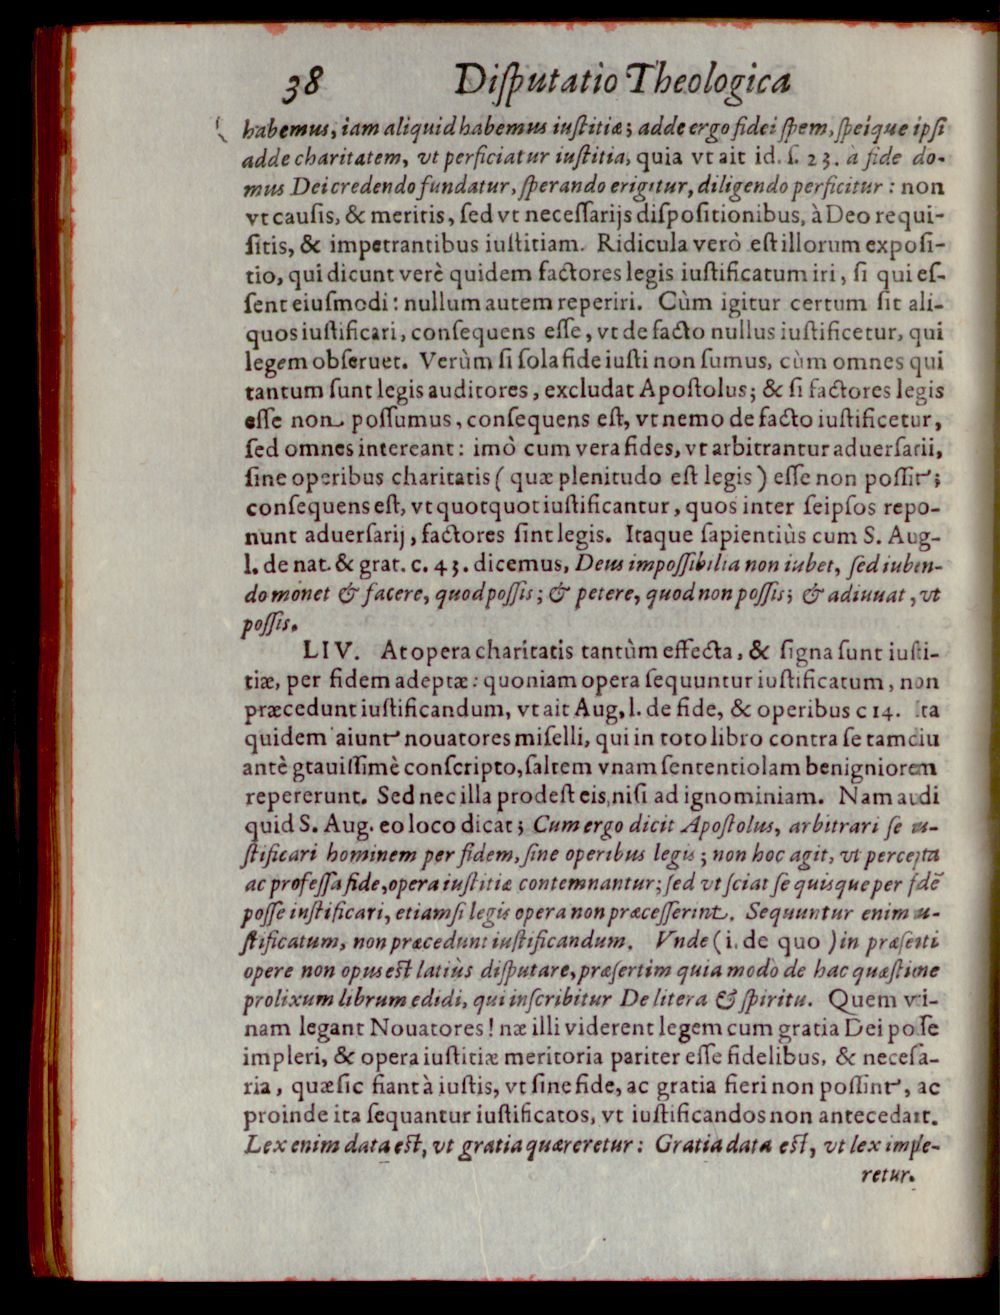 38 Diſputatio Theologica
habemus, iam aliquid habemus iuſtitiæ; adde ergo fidei ſpem, ſpeique ipſi
adde charitatem, vt perficiatur iuſtitia, quia vt ait id. ſ. 23. à fide do-
mus Dei credendo fundatur, ſperando erigitur, diligendo perficitur: non
vt cauſis, & meritis, ſed vt neceſſarijs diſpoſitionibus, à Deo requi-
ſitis, & impetrantibus iuſtitiam. Ridicula verò eſt illorum expoſi-
tio, qui dicunt verè quidem factores legis iuſtificatum iri, ſi qui eſ-
ſent eiuſmodi: nullum autem reperiri. Cùm igitur certum ſit ali-
quos iuſtificari, conſequens eſſe, vt de facto nullus iuſtificetur, qui
legem obſeruet. Verùm ſi ſola fide iuſti non ſumus, cùm omnes qui
tantum ſunt legis auditores, excludat Apoſtolus; & ſi factores legis
eſſe non poſſumus, conſequens eſt, vt nemo de facto iuſtificetur,
ſed omnes intereant: imò cum vera fides, vt arbitrantur aduerſarii,
ſine operibus charitatis (quæ plenitudo eſt legis) eſſe non poſſit;
conſequens eſt, vt quotquot iuſtificantur, quos inter ſeipſos repo-
nunt aduerſarij, factores ſint legis. Itaque ſapientiùs cum S. Aug-
l. de nat. & grat. c. 43. dicemus, Deus impoſſibilia non iubet, ſed iuben-
do monet & facere, quod poſſis; & petere, quod non poſſis; & adiuuat, vt
poſſis.
LIV. At opera charitatis tantùm effecta, & ſigna ſunt iuſti-
tiæ, per fidem adeptæ: quoniam opera ſequuntur iuſtificatum, non
præcedunt iuſtificandum, vt ait Aug, l. de fide, & operibus c 14. ita
quidem aiunt nouatores miſelli, qui in toto libro contra ſe tamdiu
antè gtauiſſimè conſcripto, ſaltem vnam ſententiolam benigniorem
repererunt. Sed nec illa prodeſt eis, niſi ad ignominiam. Nam audi
quid S. Aug. eo loco dicat; Cum ergo dicit Apoſtolus, arbitrari ſe iu-
ſtificari hominem per fidem, ſine operibus legis; non hoc agit, vt percepta
ac profeſſa fide, opera iuſtitiæ contemnantur; ſed vt ſciat ſe quisque per fidẽ
poſſe iuſtificari, etiamſi legis opera non præceſſerint. Sequuntur enim iu-
ſtificatum, non præcedunt iuſtificandum. Vnde (i. de quo) in præſenti
opere non opus eſt latiùs diſputare, præſertim quia modò de hac quæſtione
prolixum librum edidi, qui inſcribitur De litera & ſpiritu. Quem vti-
nam legant Nouatores! næ illi viderent legem cum gratia Dei poſſe
impleri, & opera iuſtitiæ meritoria pariter eſſe fidelibus, & neceſſa-
ria, quæ ſic fiant à iuſtis, vt ſine fide, ac gratia fieri non poſſint, ac
proinde ita ſequantur iuſtificatos, vt iuſtificandos non antecedant.
Lex enim data eſt, vt gratia quæreretur: Gratia data eſt, vt lex imple-
retur.